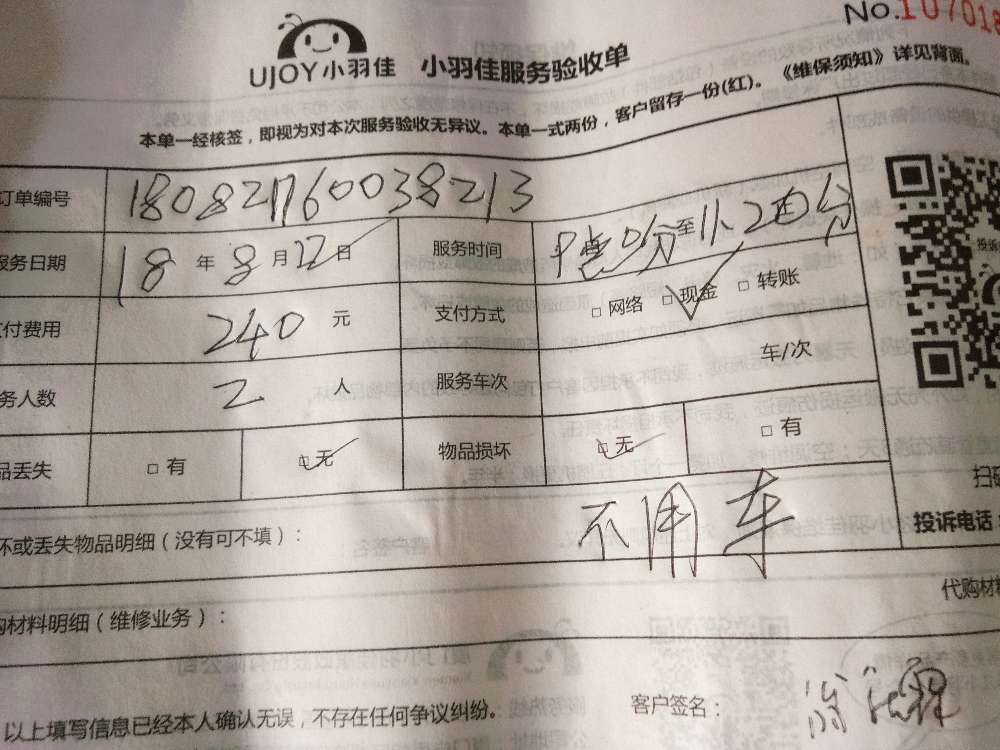 No.10701
UJOY小羽佳 小羽佳服务验收单
本单一经核签，即视为对本次服务验收无异议。本单一式两份，客户留存一份(红)。《维保须知》详见背面。
订单编号 180821760038213
服务日期 18 年 8 月 22 日 服务时间 分至 分
付费用 240 元 支付方式 □ 网络 □ 现金 □ 转账
务人数 2 人 服务车次 车/次
品丢失 □ 有 □ 无 物品损坏 □ 无 □ 有
扫码
坏或丢失物品明细（没有可不填）： 不用车 投诉电话
购材料明细（维修业务）： 代购材料
以上填写信息已经本人确认无误，不存在任何争议纠纷。 客户签名：